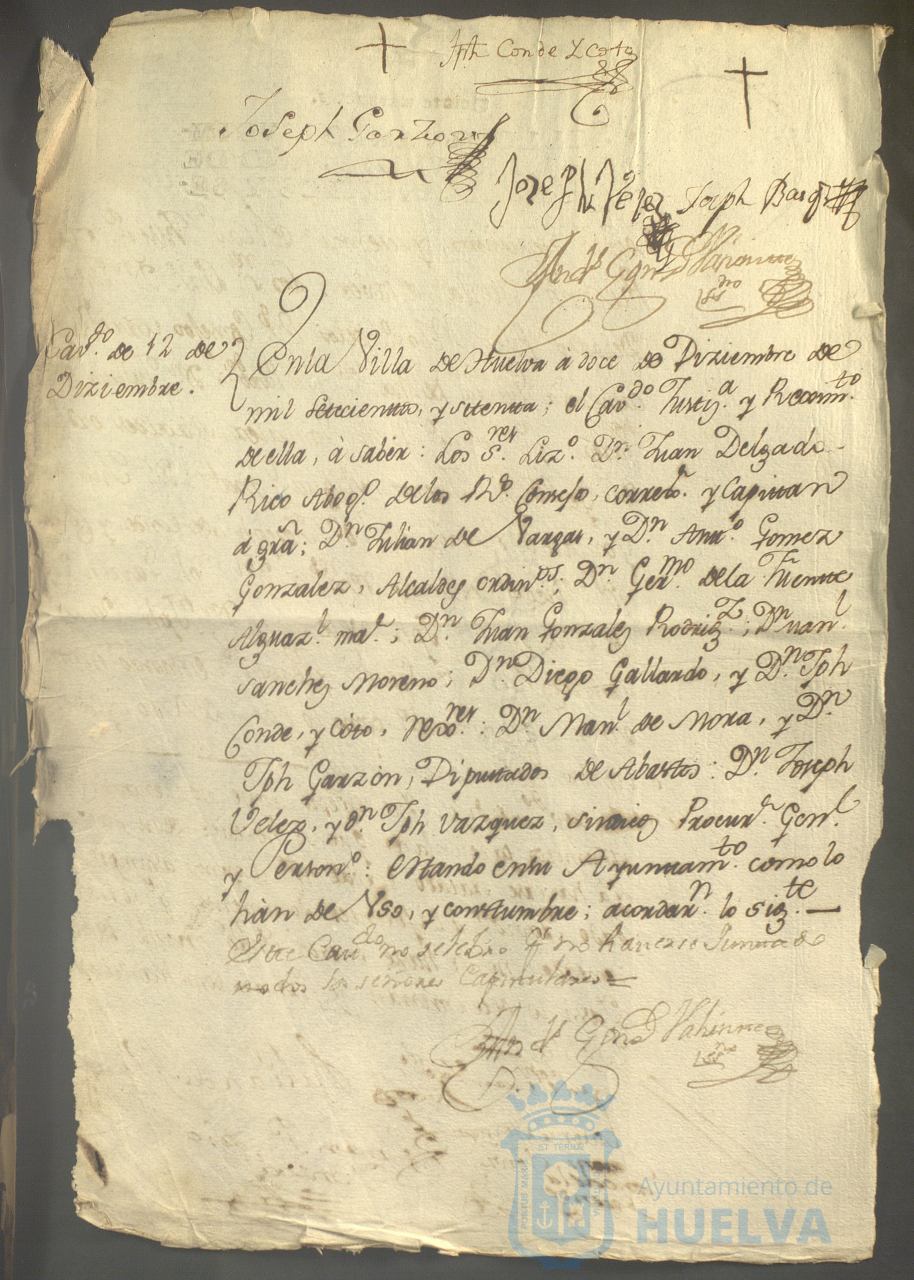 Jph Conde y Coto
Joseph Garzon
Joseph Velez Joseph Basqz
Andˢ Gonz
Cavᵈᵒ. de 12 de
Diziembre.
En la Villa de Huelva à doce de Diziembre de
mil setecientos, y setenta; el Cavᵈᵒ Justizᵃ. y Reximᵗᵒ.
de ella, à saber: Los Sʳᵉˢ. Lizᵒ. Dⁿ. Juan Delgado
Rico Abogᵒ. de los Rˢ. Consejos, corregʳ. y Capitan
à grã; Dⁿ Julian de Vargas, y Dⁿ Antᵒ. Gomez
Gonzalez, Alcaldes ordinᵒˢ; Dⁿ Germᵒ de la Fuente
Alguazˡ. maʳ.; Dⁿ. Juan Gonzalez Rodrigᶻ.; Dⁿ Juan
Sanchez Moreno; Dⁿ Diego Gallardo, y Dⁿ Jph
Conde, y Coto, rexᵒʳᵉˢ: Dⁿ Manˡ. de Mora, y Dⁿ
Jph Garzòn, Diputados de Abastos: Dⁿ. Joseph
Velez, y Dⁿ Jph Vazquez, sindicos Procurʳ. Genˡ.
y Personᵒ: estando en su Ayuntamᵗᵒ. como lo
hàn de Vso, y constumbre; acordarⁿ. lo sigᵗᵉ.—
Este Cavᵈᵒ no se selebro pʳ no haverse Juntado
todos los señores Capitulares=
Andˢ Gonz
Ayuntamiento de
HUELVA